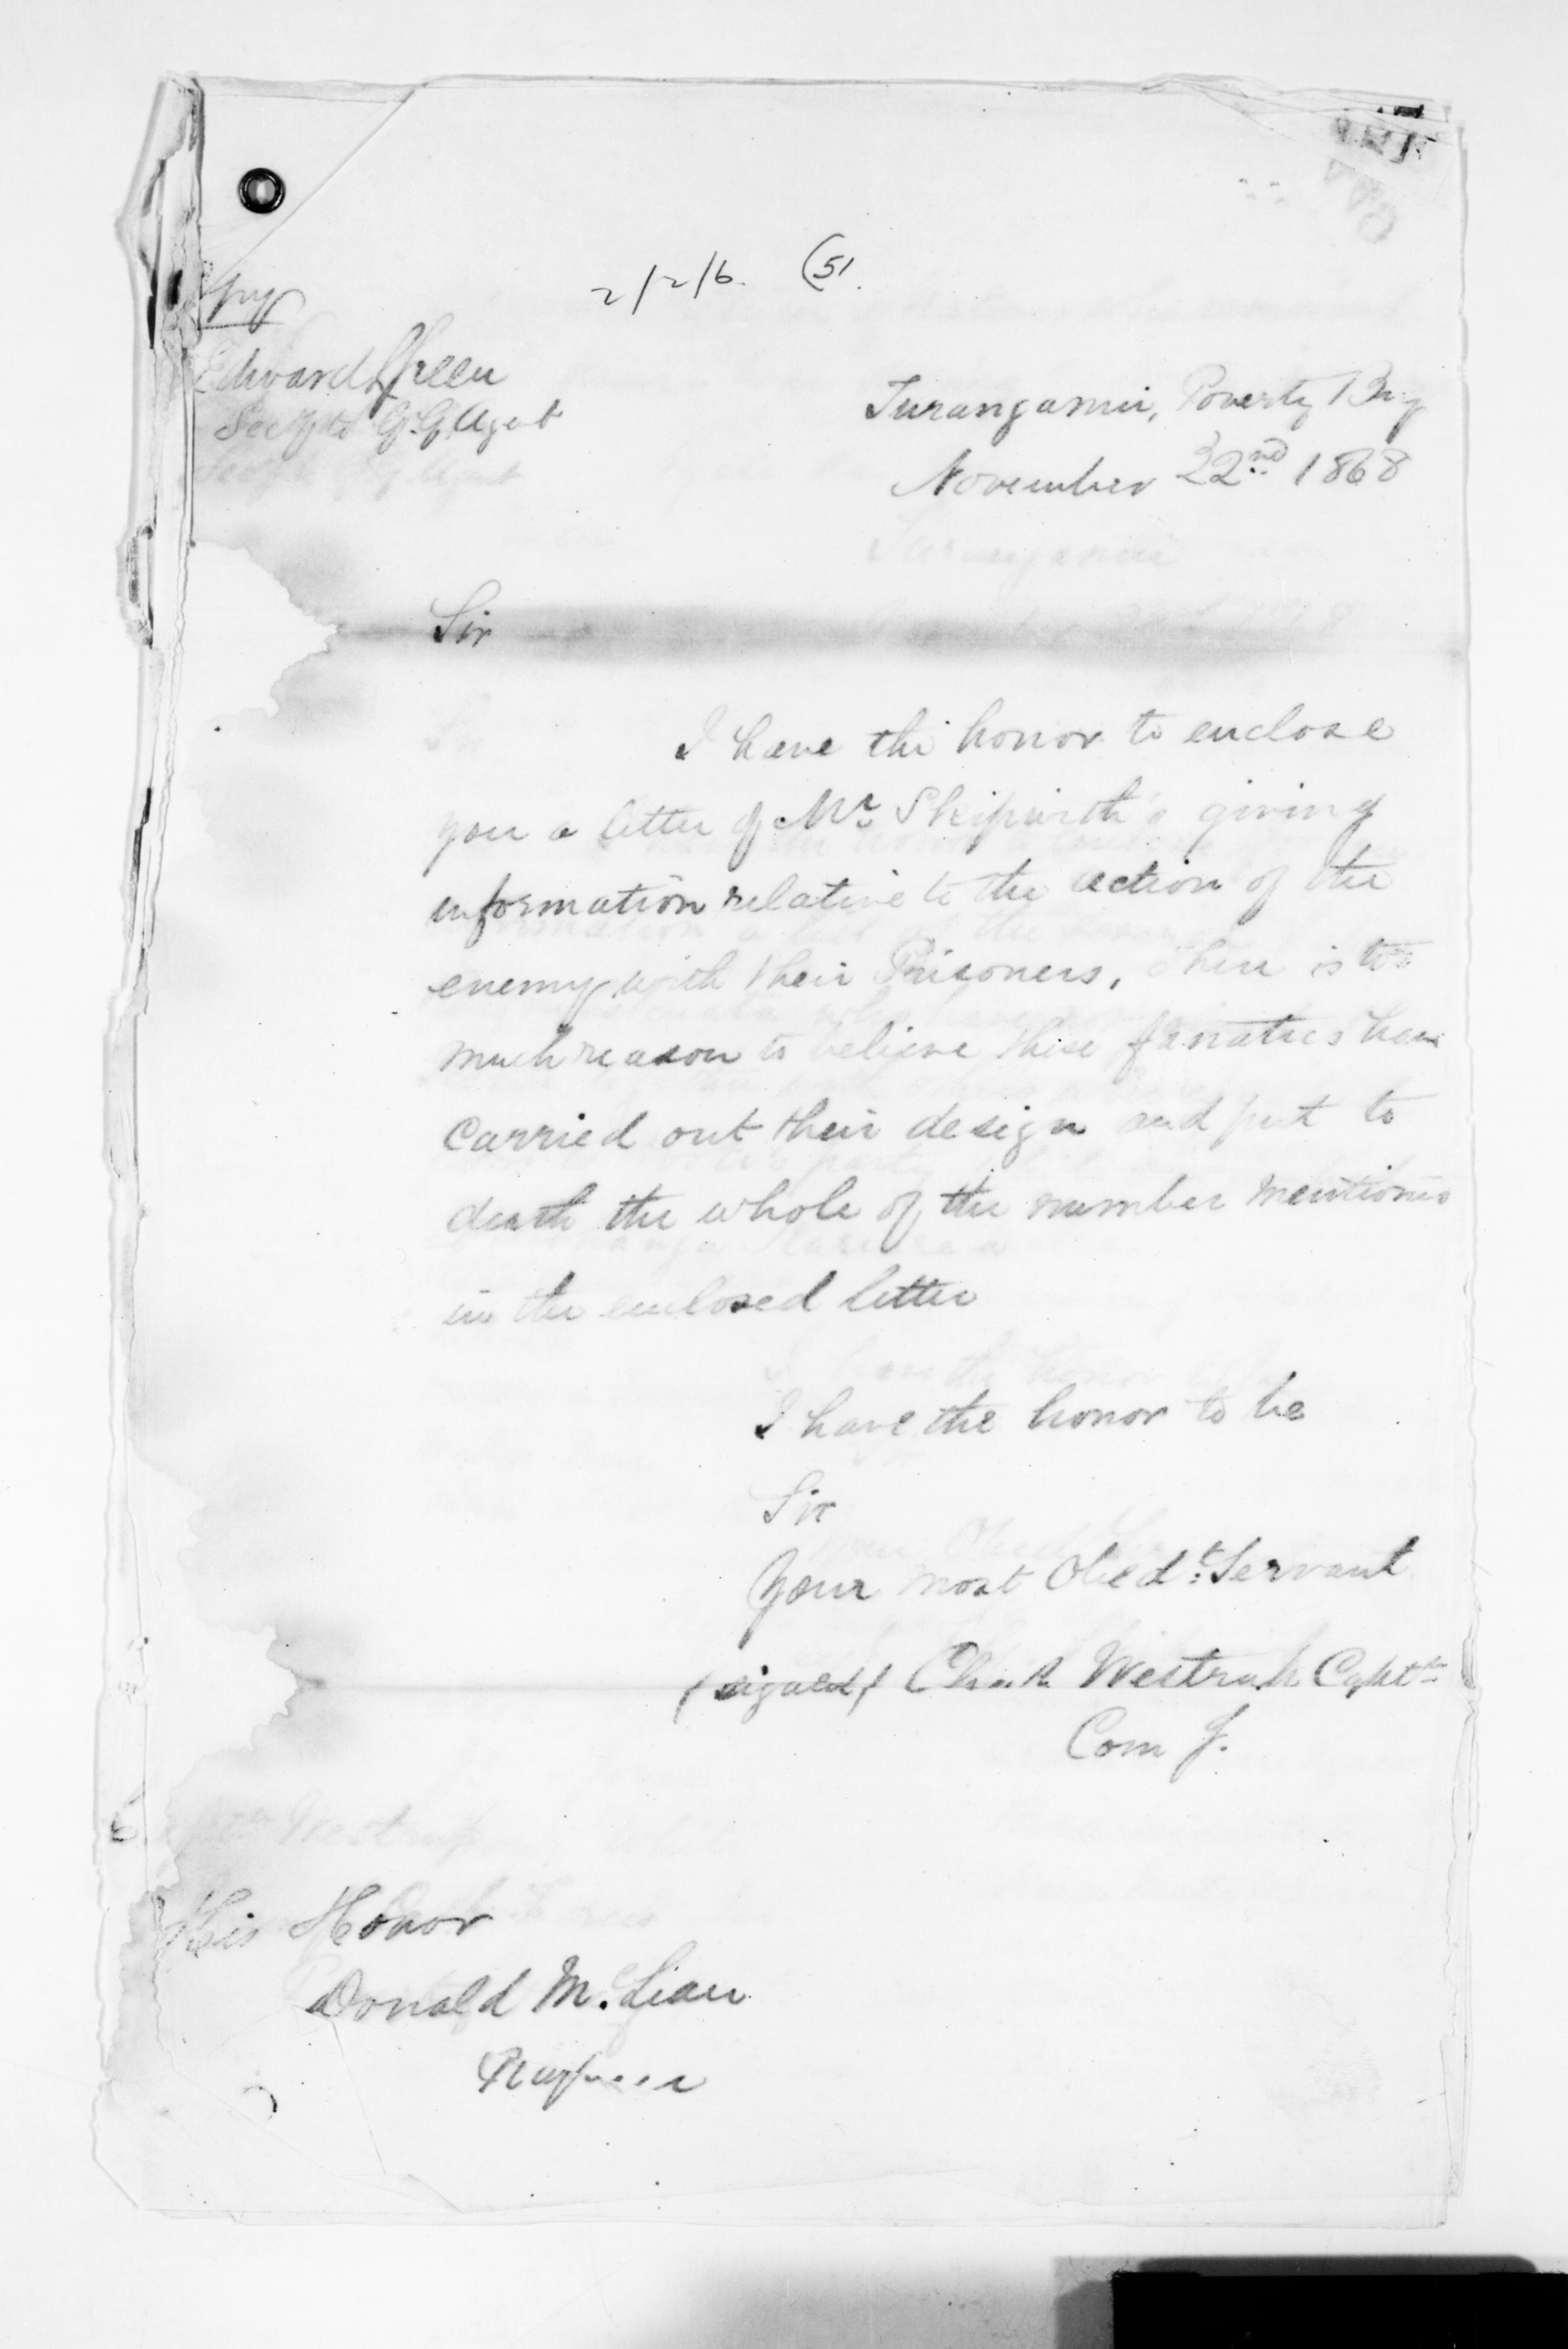 2/2/6. (51.
Copy
Edward Green
Secy to G. G. Agent
Turanganui, Poverty Bay
November 22nd 1868
Sir
I have the honor to enclose
you a letter of Mr. Skipwith's giving
information relative to the action of the
enemy with their Prisoners, there is too
much reason to believe these fanatics have
carried out their design and put to
death the whole of the number mentioned
in the enclosed letter
I have the honor to be
Sir
Your most Obedt. Servant
(signed) Chas. Westrup Captn
Com g.
His Honor
Donald McLean
Napier